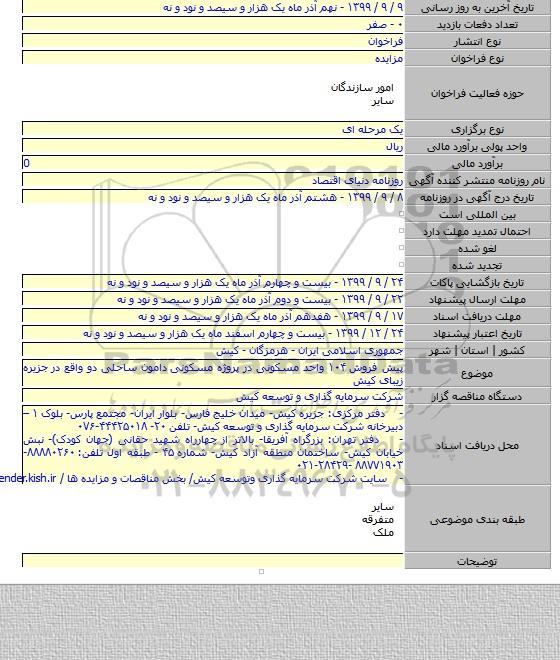 تاریخ آخرین به روز رسانی ۹ / ۹ / ۱۳۹۹ - نهم آذر ماه یک هزار و سیصد و نود و نه
تعداد دفعات بازدید ۰ - صفر
نوع انتشار فراخوان
نوع فراخوان مزایده
حوزه فعالیت فراخوان
امور سازندگان
سایر
نوع برگزاری یک مرحله ای
واحد پولی برآورد مالی ریال
برآورد مالی 0
نام روزنامه منتشر کننده آگهی روزنامه دنیای اقتصاد
تاریخ درج آگهی در روزنامه ۸ / ۹ / ۱۳۹۹ - هشتم آذر ماه یک هزار و سیصد و نود و نه
بین المللی است
احتمال تمدید مهلت دارد
لغو شده
تجدید شده
تاریخ بازگشایی پاکات ۲۴ / ۹ / ۱۳۹۹ - بیست و چهارم آذر ماه یک هزار و سیصد و نود و نه
مهلت ارسال پیشنهاد ۲۲ / ۹ / ۱۳۹۹ - بیست و دوم آذر ماه یک هزار و سیصد و نود و نه
مهلت دریافت اسناد ۱۷ / ۹ / ۱۳۹۹ - هفدهم آذر ماه یک هزار و سیصد و نود و نه
تاریخ اعتبار پیشنهاد ۲۴ / ۱۲ / ۱۳۹۹ - بیست و چهارم اسفند ماه یک هزار و سیصد و نود و نه
کشور | استان | شهر جمهوری اسلامی ایران - هرمزگان - کیش
موضوع
پیش فروش ۱۰۴ واحد مسکونی در پروژه مسکونی دامون ساحلی دو واقع در جزیره زیبای کیش
دستگاه مناقصه گزار شرکت سرمایه گذاری و توسعه کیش
محل دریافت اسناد
- دفتر مرکزی: جزیره کیش- میدان خلیج فارس- بلوار ایران- مجتمع پارس- بلوک ۱ –
دبیرخانه شرکت سرمایه گذاری و توسعه کیش- تلفن ۲۰- ۴۴۴۲۵۰۱۸-۰۷۶
- دفتر تهران: بزرگراه آفریقا- بالاتر از چهارراه شهید حقانی (جهان کودک)- نبش
خیابان کیش- ساختمان منطقه آزاد کیش- شماره ۴۵ - طبقه اول تلفن: ۸۸۸۸۰۲۶۰-
۸۸۷۷۱۹۰۳ -۲۸۴۲۹-۰۲۱
- سایت شرکت سرمایه گذاری وتوسعه کیش/ بخش مناقصات و مزایده ها / ender.kish.ir
طبقه بندی موضوعی
سایر
متفرقه
ملک
توضیحات
ParsNamadData
۰۲۱-۸۸۳۴۹۶۷۰-۵